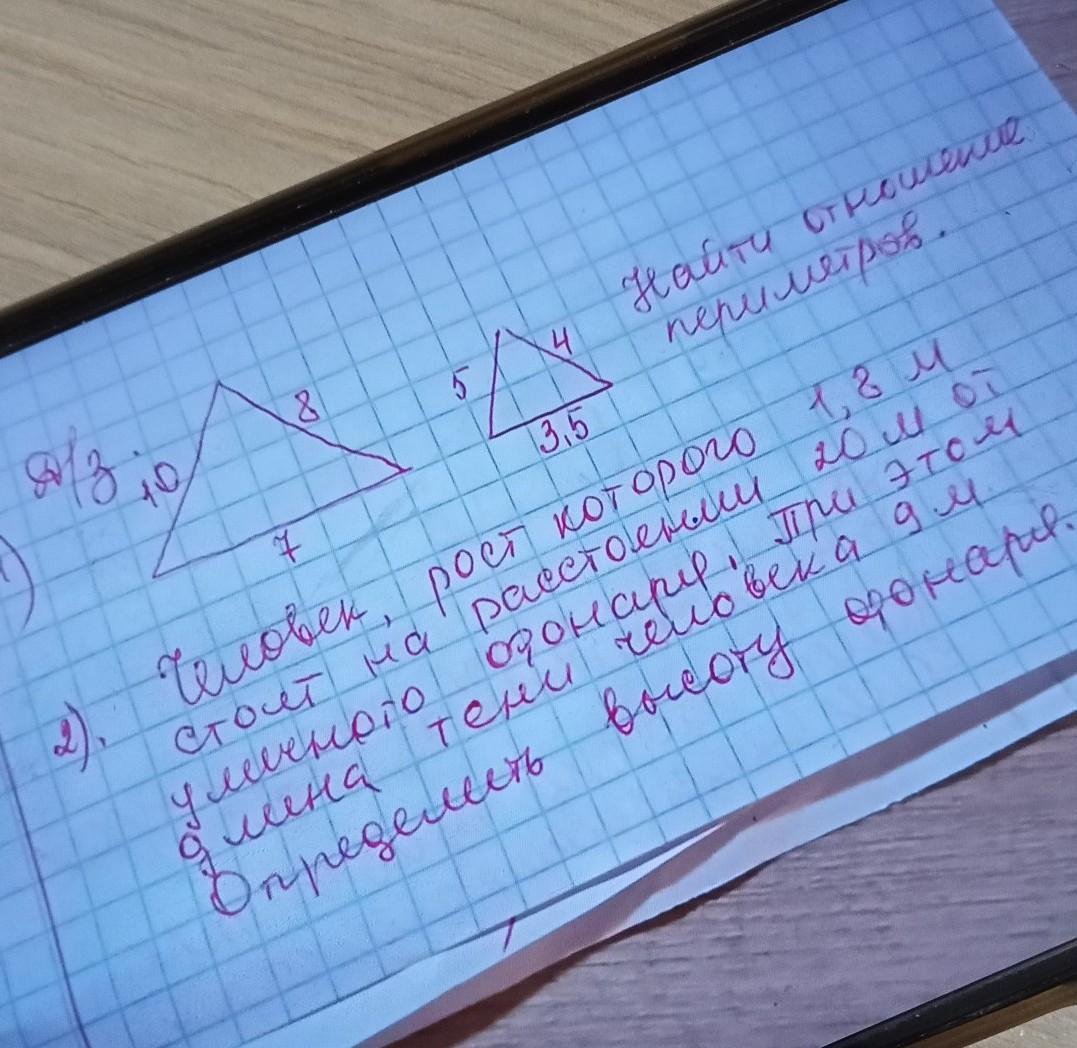 Д/З.
1)
10
8
7
5
4
3,5
Найти отношение
периметров.
2). Человек, рост которого 1,8 м
стоит на расстоянии 20 м от
уличного фонаря. При этом
длина тени человека 9 м
Определить высоту фонаря.